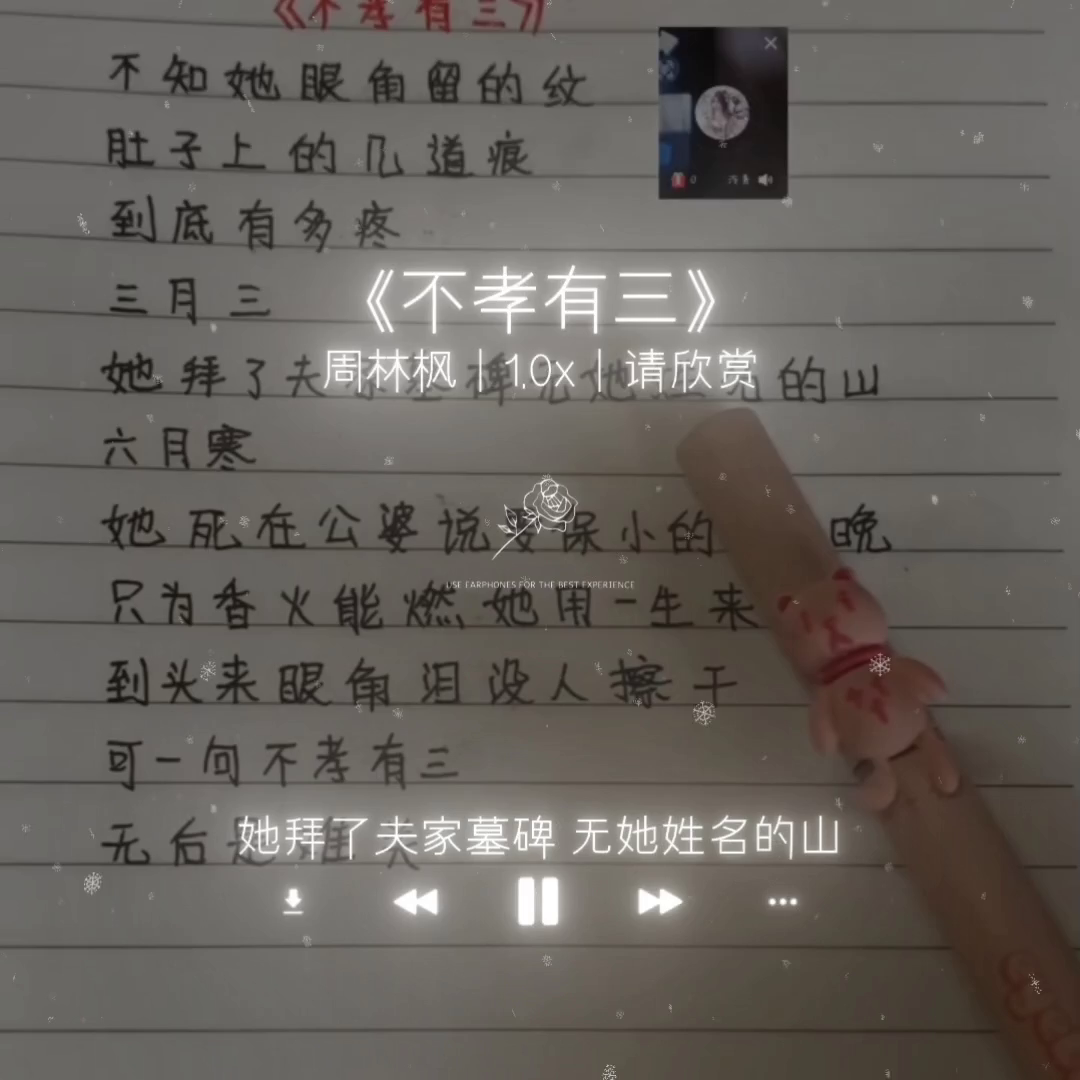 《不孝有三》
不知她眼角留的纹
肚子上的几道痕
到底有多疼
三月三
《不孝有三》
周林枫 | 1.0x | 请欣赏
她拜了夫 碑 她 的山
六月寒
她死在公婆说要保小的 晚
USE EARPHONES FOR THE BEST EXPERIENCE
只为香火能燃她用一生来
到头来眼角泪没人擦干
可一句不孝有三
她拜了夫家墓碑 无她姓名的山
无后是 大
0